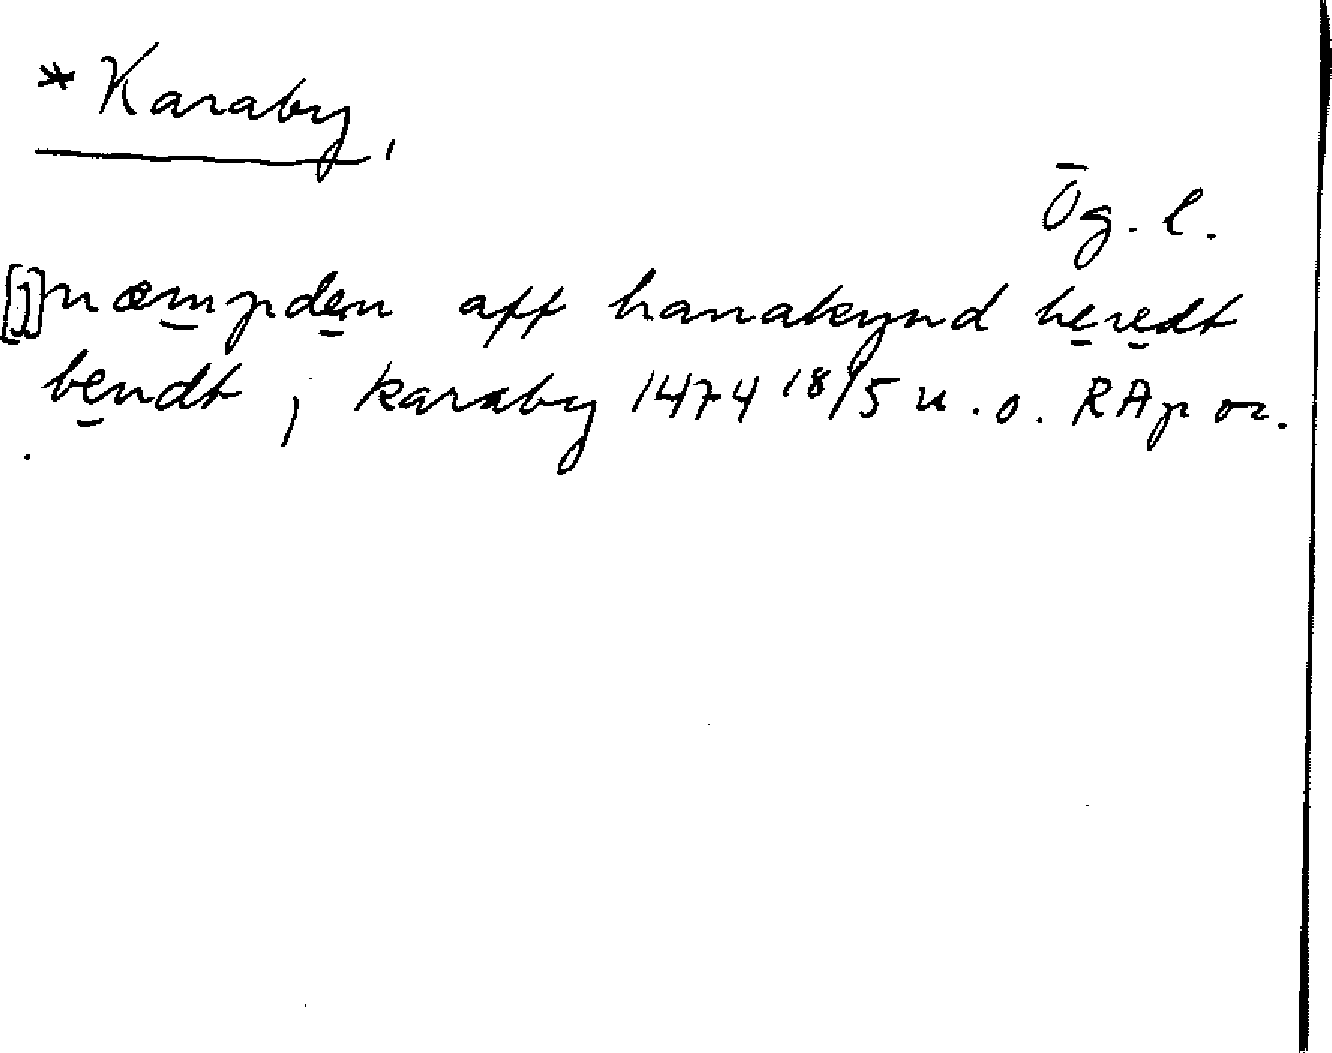 * Karaby,
Ög. l.
[j] næmpden aff hanakynd heredt
bendt j karaby 1474 18/5 u. o. RAp or.